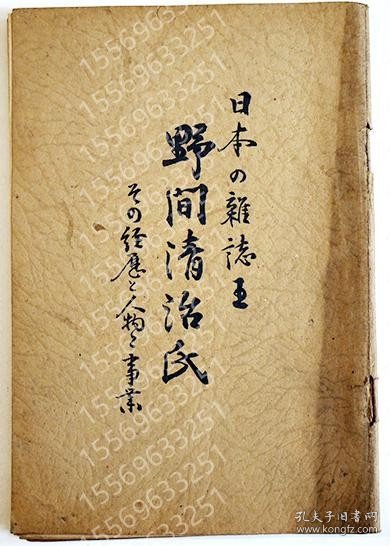 日本の雑誌王
野間清治氏
その経歴と人物と事業
15569633251
孔夫子旧书网
www.kongfz.com